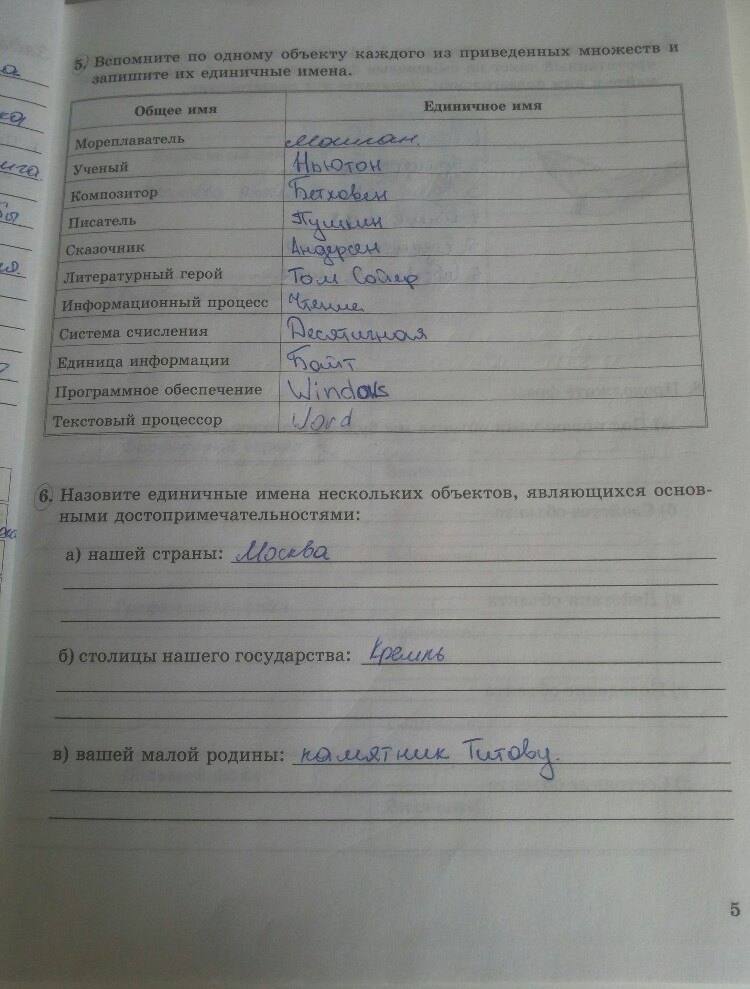 5. Вспомните по одному объекту каждого из приведенных множеств и
запишите их единичные имена.
Общее имя Единичное имя
Мореплаватель
Ученый Ньютон
Композитор Бетховен
Писатель Пушкин
Сказочник Андерсен
Литературный герой Том Сойер
Информационный процесс Чтение
Система счисления Десятичная
Единица информации Байт
Программное обеспечение Windows
Текстовый процессор Word
6. Назовите единичные имена нескольких объектов, являющихся основ-
ными достопримечательностями:
а) нашей страны: Москва
б) столицы нашего государства: Кремль
в) вашей малой родины: памятник Титову.
5